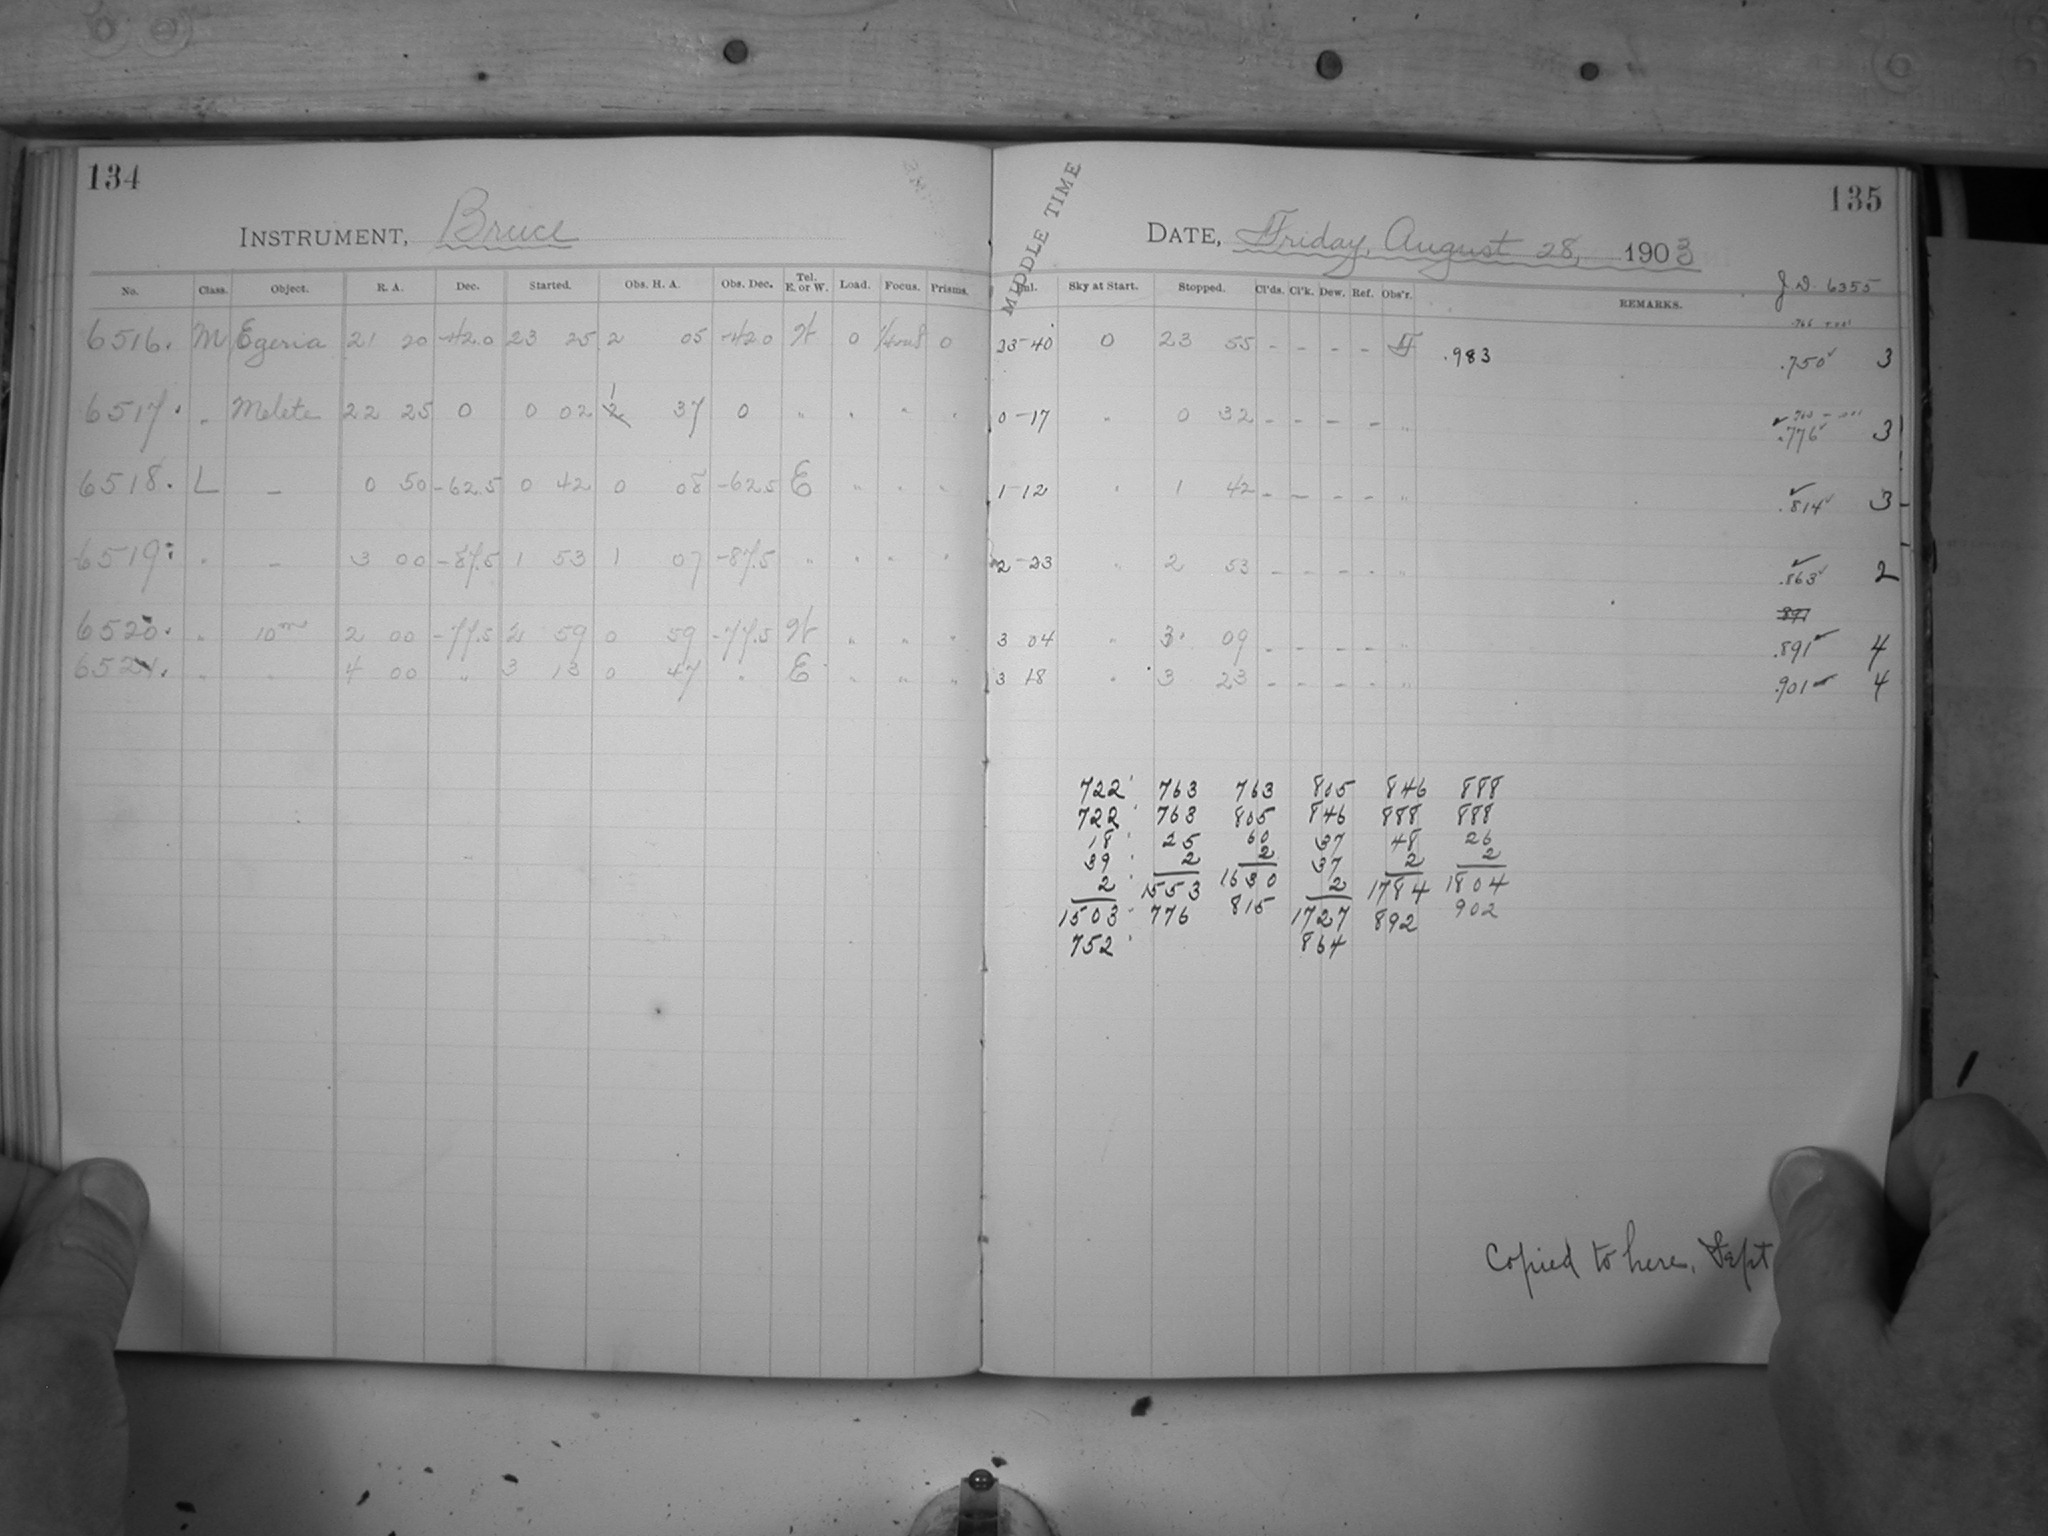 134
INSTRUMENT, Bruce
No. Class. Object. R. A. Dec. Started. Obs. H. A. Obs. Dec. Tel. E. or W. Load. Focus. Prisms.
6516. M Egeria 21 20 -42.0 23 25 2 05 -42.0 W 0 0
6517. " Melete 22 25 0 0 02 1 37 0 " " " "
6518. L — 0 50 -62.5 0 42 0 08 -62.5 E " " "
6519. " — 3 00 -87.5 1 53 1 07 -87.5 " " " "
6520. " 10m 2 00 -77.5 2 59 0 59 -77.5 W " " "
6521. " " 4 00 " 3 13 0 47 " E " " "
135
MIDDLE TIME
DATE, Friday, August 28, 1903
J.D. 6355
Sky at Start. Stopped. Cl'ds. Cl'k. Dew. Ref. Obs'r. REMARKS.
23-40 0 23 55 - - - - .983 .750 3
0-17 " 0 32 - - - - " .776 3
1-12 " 1 42 - - - - " .814 3
2-23 " 2 53 - - - - " .863 2
891
3 04 " 3 09 - - - - " .891 4
3 18 " 3 23 - - - - " .901 4
722 763 763 805 846 888
722 763 805 846 888 888
18 25 60 37 48 26
39 2 2 37 2 2
2 1553 1630 2 1784 1804
1503 776 815 1727 892 902
752 864
Copied to here, Sept